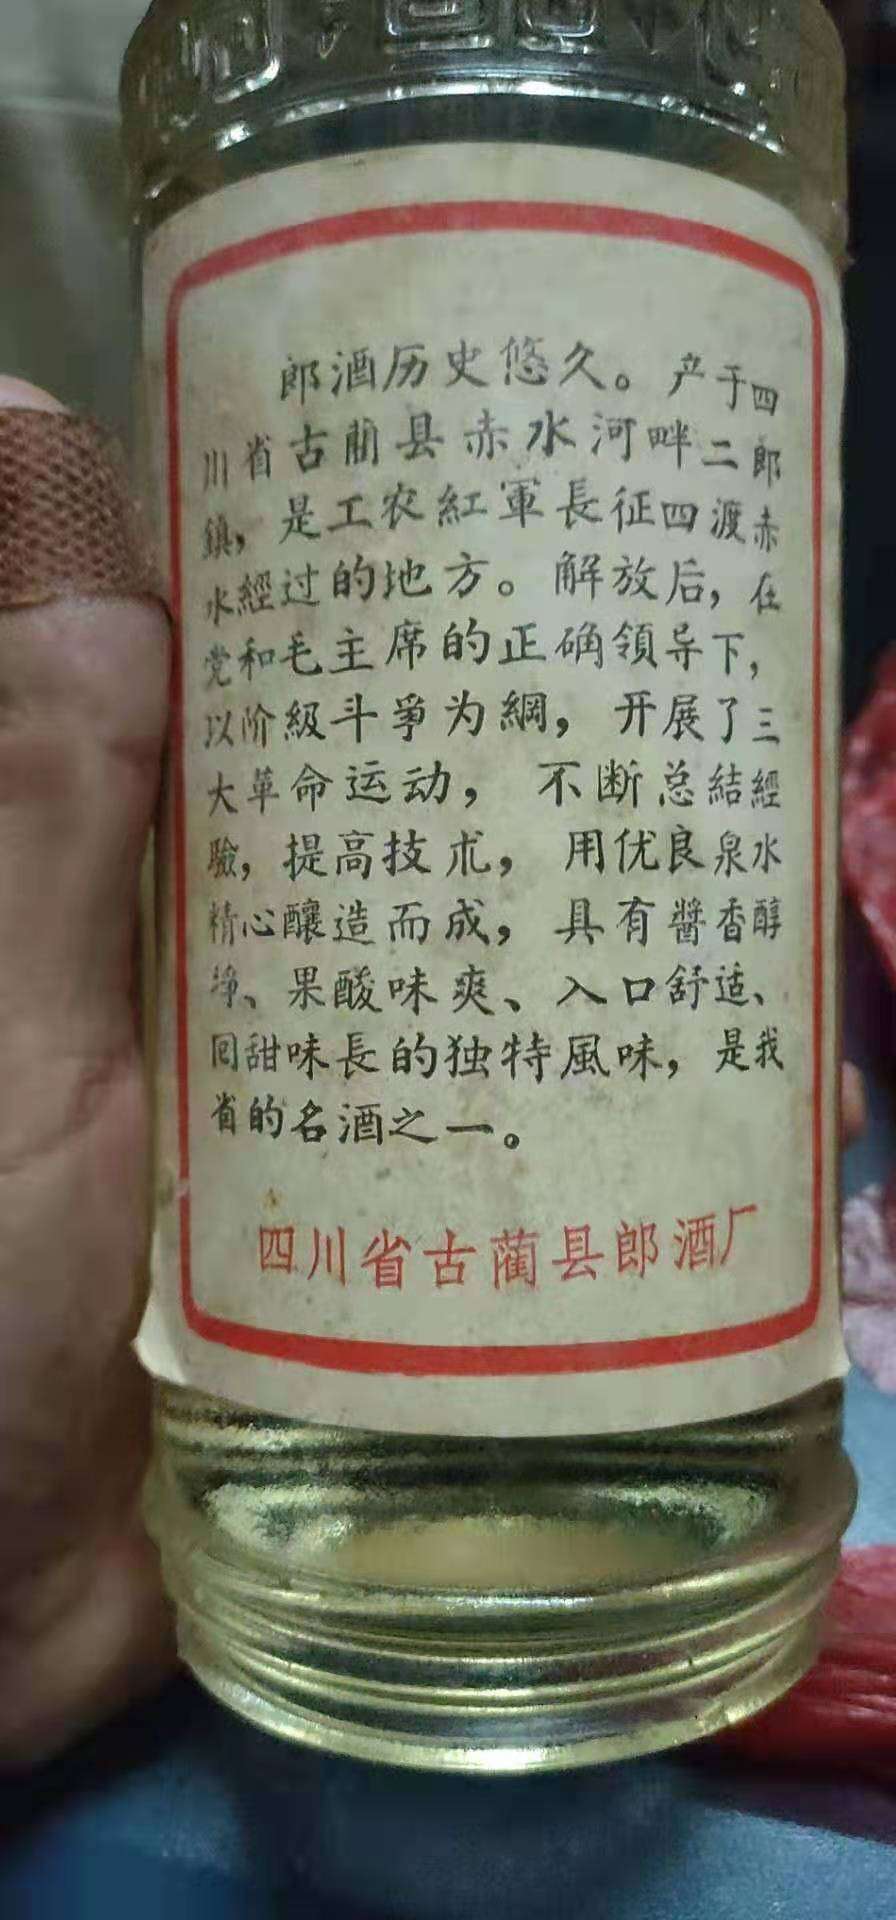 郎酒历史悠久。产于四
川省古藺县赤水河畔二郎
鎮，是工农紅軍長征四渡赤
水經过的地方。解放后，在
党和毛主席的正确領导下，
以阶級斗爭为綱，开展了三
大革命运动，不断总結經
驗，提高技术，用优良泉水
精心釀造而成，具有醬香醇
淨、果酸味爽、入口舒适、
回甜味長的独特風味，是我
省的名酒之一。
四川省古藺县郎酒厂